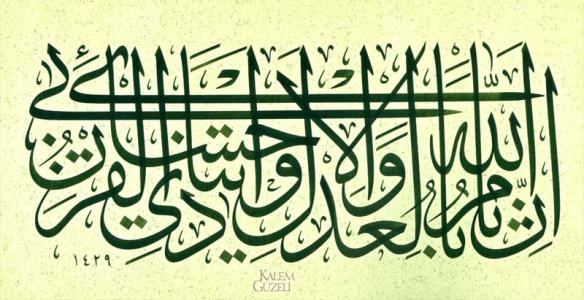 إن الله يأمر بالعدل والإحسان وإيتاء ذي القربى
١٤٢٩
KALEM GUZELI